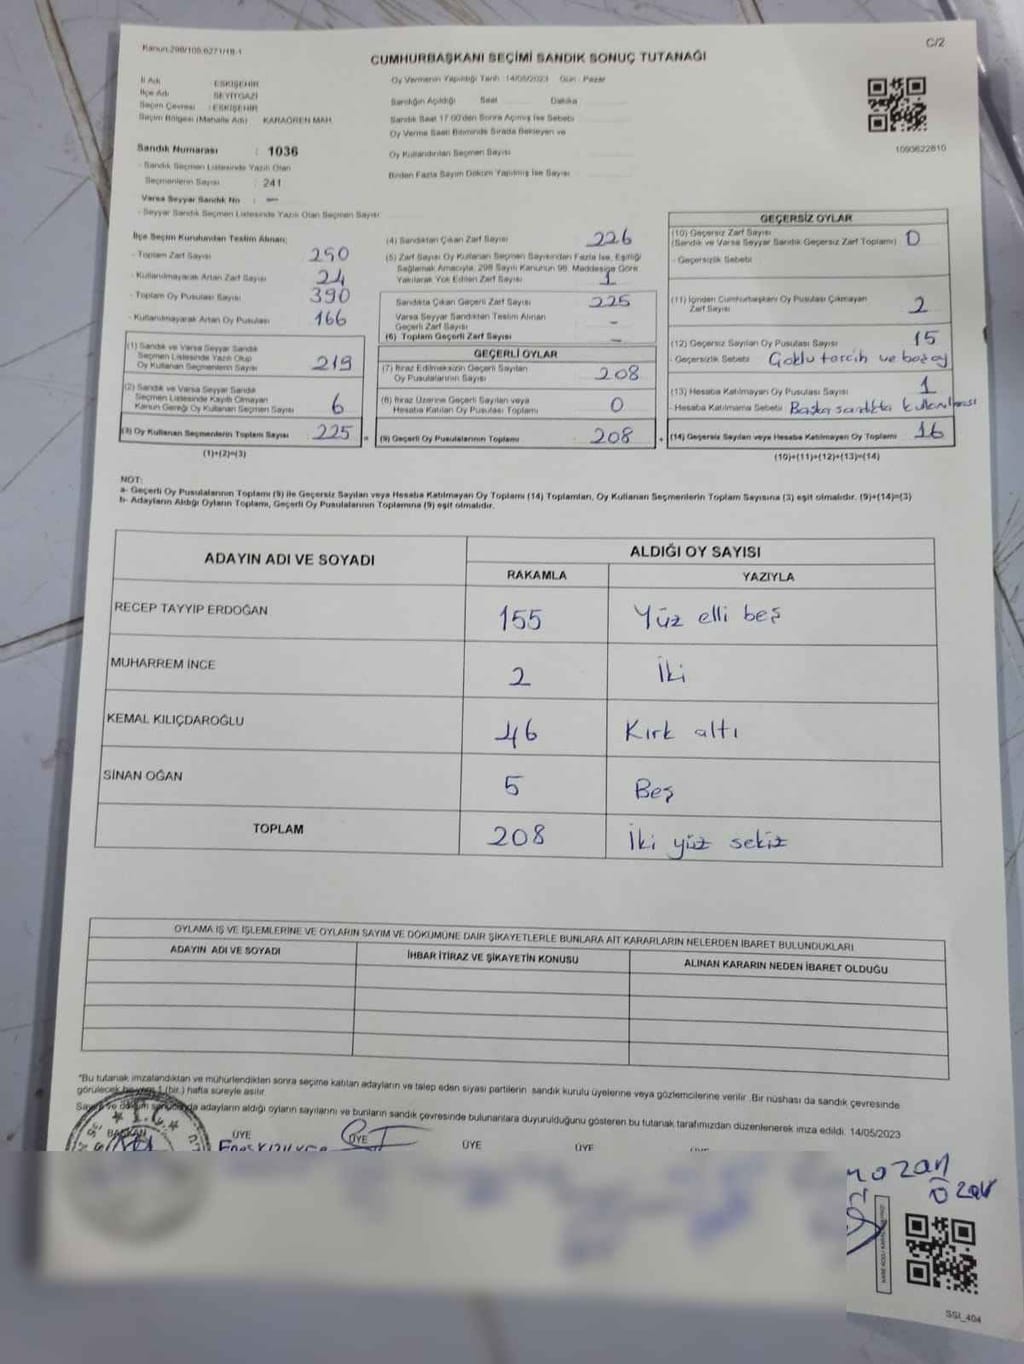 Kanun:298/105,6271/18-1
C/2
CUMHURBAŞKANI SEÇİMİ SANDIK SONUÇ TUTANAĞI
İl Adı : ESKİŞEHİR
İlçe Adı : SEYİTGAZİ
Seçim Çevresi : ESKİŞEHİR
Seçim Bölgesi (Mahalle Adı) : KARAÖREN MAH.
Sandık Numarası : 1036
- Sandık Seçmen Listesinde Yazılı Olan
Seçmenlerin Sayısı : 241
Varsa Seyyar Sandık No : —
- Seyyar Sandık Seçmen Listesinde Yazılı Olan Seçmen Sayısı
Oy Vermenin Yapıldığı Tarih : 14/05/2023 Gün : Pazar
Sandığın Açıldığı Saat Dakika
Sandık Saat 17:00'den Sonra Açılmış İse Sebebi
Oy Verme Saati Bitiminde Sırada Bekleyen ve
Oy Kullandırılan Seçmen Sayısı
Birden Fazla Sayım Döküm Yapılmış İse Sayısı
1093622810
İlçe Seçim Kurulundan Teslim Alınan;
- Toplam Zarf Sayısı 250
- Kullanılmayarak Artan Zarf Sayısı 24
- Toplam Oy Pusulası Sayısı 390
- Kullanılmayarak Artan Oy Pusulası 166
(1) Sandık ve Varsa Seyyar Sandık
Seçmen Listesinde Yazılı Olup
Oy Kullanan Seçmenlerin Sayısı 219
(2) Sandık ve Varsa Seyyar Sandık
Seçmen Listesinde Kayıtlı Olmayan
Kanun Gereği Oy Kullanan Seçmen Sayısı 6
(3) Oy Kullanan Seçmenlerin Toplam Sayısı 225 =
(1)+(2)=(3)
(4) Sandıktan Çıkan Zarf Sayısı 226
(5) Zarf Sayısı Oy Kullanan Seçmen Sayısından Fazla İse, Eşitliği
Sağlamak Amacıyla, 298 Sayılı Kanunun 98. Maddesine Göre
Yakılarak Yok Edilen Zarf Sayısı 1
Sandıkta Çıkan Geçerli Zarf Sayısı 225
Varsa Seyyar Sandıktan Teslim Alınan
Geçerli Zarf Sayısı -
(6) Toplam Geçerli Zarf Sayısı -
GEÇERLİ OYLAR
(7) İtiraz Edilmeksizin Geçerli Sayılan
Oy Pusulalarının Sayısı 208
(8) İtiraz Üzerine Geçerli Sayılan veya
Hesaba Katılan Oy Pusulası Toplamı 0
(9) Geçerli Oy Pusulalarının Toplamı 208 +
GEÇERSİZ OYLAR
(10) Geçersiz Zarf Sayısı
(Sandık ve Varsa Seyyar Sandık Geçersiz Zarf Toplamı) 0
- Geçersizlik Sebebi
(11) İçinden Cumhurbaşkanı Oy Pusulası Çıkmayan
Zarf Sayısı 2
(12) Geçersiz Sayılan Oy Pusulası Sayısı 15
- Geçersizlik Sebebi Çoklu tercih ve boz oy
(13) Hesaba Katılmayan Oy Pusulası Sayısı 1
- Hesaba Katılmama Sebebi Başka sandıkta kullanılması
(14) Geçersiz Sayılan veya Hesaba Katılmayan Oy Toplamı 16
(10)+(11)+(12)+(13)=(14)
NOT:
a- Geçerli Oy Pusulalarının Toplamı (9) ile Geçersiz Sayılan veya Hesaba Katılmayan Oy Toplamı (14) Toplamları, Oy Kullanan Seçmenlerin Toplam Sayısına (3) eşit olmalıdır. (9)+(14)=(3)
b- Adayların Aldığı Oyların Toplamı, Geçerli Oy Pusulalarının Toplamına (9) eşit olmalıdır.
ADAYIN ADI VE SOYADI
ALDIĞI OY SAYISI
RAKAMLA YAZIYLA
RECEP TAYYİP ERDOĞAN 155 Yüz elli beş
MUHARREM İNCE 2 İki
KEMAL KILIÇDAROĞLU 46 Kırk altı
SİNAN OĞAN 5 Beş
TOPLAM 208 İki yüz sekiz
OYLAMA İŞ VE İŞLEMLERİNE VE OYLARIN SAYIM VE DÖKÜMÜNE DAİR ŞİKAYETLERLE BUNLARA AİT KARARLARIN NELERDEN İBARET BULUNDUKLARI
ADAYIN ADI VE SOYADI İHBAR İTİRAZ VE ŞİKAYETİN KONUSU ALINAN KARARIN NEDEN İBARET OLDUĞU
*Bu tutanak imzalandıktan ve mühürlendikten sonra seçime katılan adayların ve talep eden siyasi partilerin sandık kurulu üyelerine veya gözlemcilerine verilir. Bir nüshası da sandık çevresinde
görülecek bir yere 1 (bir) hafta süreyle asılır.
Sayım ve döküm sonucunda adayların aldığı oyların sayılarını ve bunların sandık çevresinde bulunanlara duyurulduğunu gösteren bu tutanak tarafımızdan düzenlenerek imza edildi. 14/05/2023
BAŞKAN ÜYE ÜYE ÜYE ÜYE
Özer
SSI_404